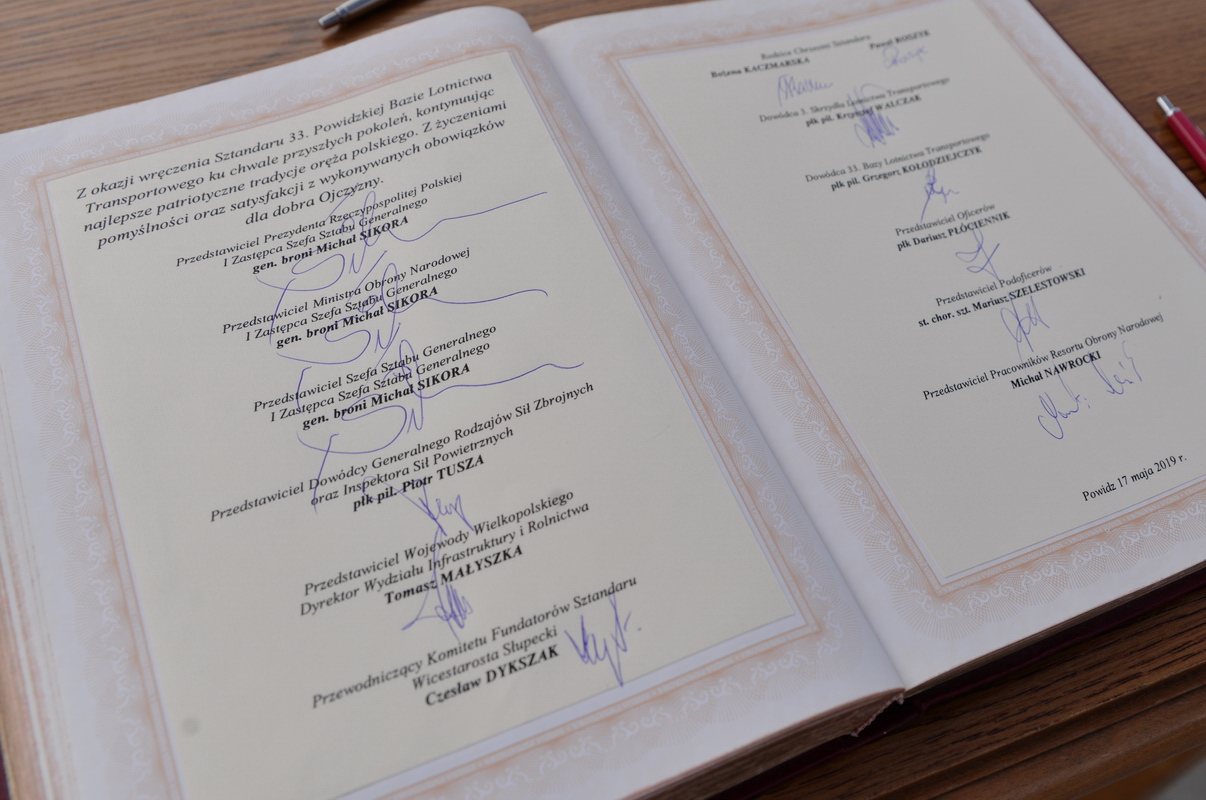 Z okazji wręczenia Sztandaru 33. Powidzkiej Bazie Lotnictwa
Transportowego ku chwale przyszłych pokoleń, kontynuując
najlepsze patriotyczne tradycje oręża polskiego. Z życzeniami
pomyślności oraz satysfakcji z wykonywanych obowiązków
dla dobra Ojczyzny.
Przedstawiciel Prezydenta Rzeczypospolitej Polskiej
I Zastępca Szefa Sztabu Generalnego
gen. broni Michał SIKORA
Przedstawiciel Ministra Obrony Narodowej
I Zastępca Szefa Sztabu Generalnego
gen. broni Michał SIKORA
Przedstawiciel Szefa Sztabu Generalnego
I Zastępca Szefa Sztabu Generalnego
gen. broni Michał SIKORA
Przedstawiciel Dowódcy Generalnego Rodzajów Sił Zbrojnych
oraz Inspektora Sił Powietrznych
płk pil. Piotr TUSZA
Przedstawiciel Wojewody Wielkopolskiego
Dyrektor Wydziału Infrastruktury i Rolnictwa
Tomasz MAŁYSZKA
Przewodniczący Komitetu Fundatorów Sztandaru
Wicestarosta Słupecki
Czesław DYKSZAK
Rodzice Chrzestni Sztandaru
Bożena KACZMARSKA Paweł ROSZYK
Dowódca 3. Skrzydła Lotnictwa Transportowego
płk pil. Krzysztof WALCZAK
Dowódca 33. Bazy Lotnictwa Transportowego
płk pil. Grzegorz KOŁODZIEJCZYK
Przedstawiciel Oficerów
płk Dariusz PŁÓCIENNIK
Przedstawiciel Podoficerów
st. chor. szt. Mariusz SZELESTOWSKI
Przedstawiciel Pracowników Resortu Obrony Narodowej
Michał NAWROCKI
Powidz 17 maja 2019 r.